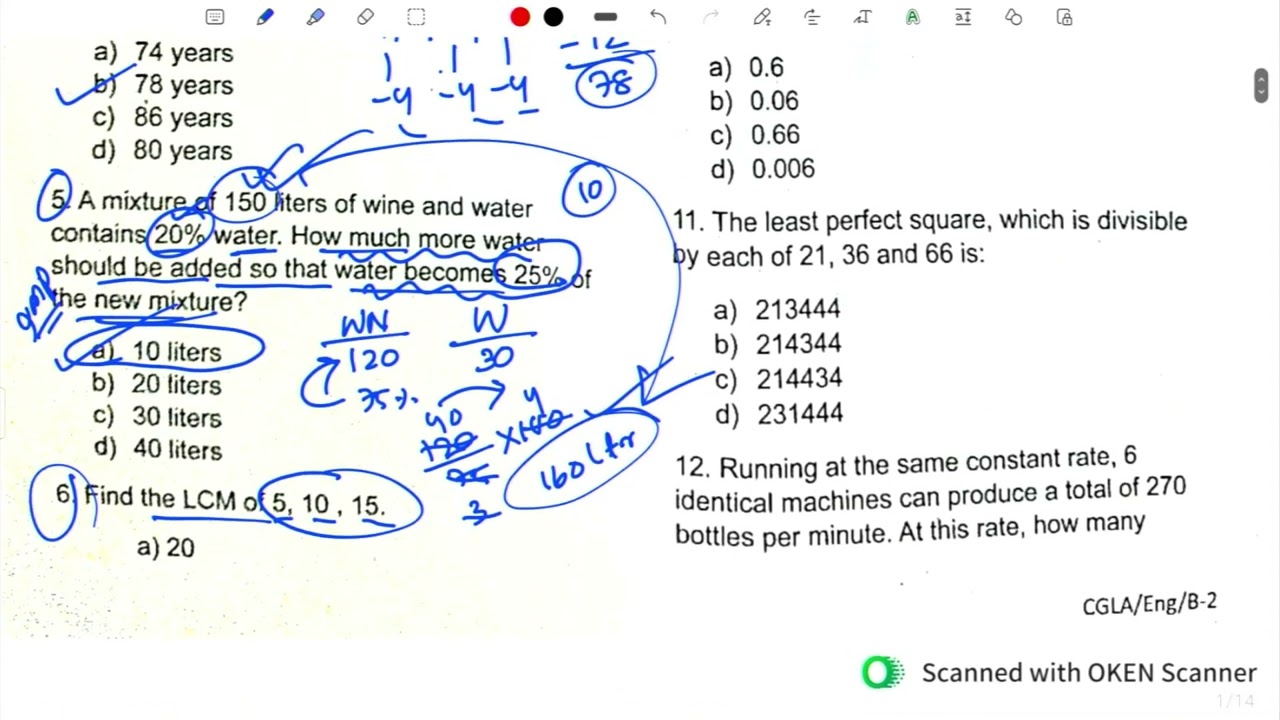 a) 74 years
b) 78 years
c) 86 years
d) 80 years
-4 -4 -4
-12
78
5. A mixture of 150 liters of wine and water
contains 20% water. How much more water
should be added so that water becomes 25% of
the new mixture?
10
a) 10 liters
b) 20 liters
c) 30 liters
d) 40 liters
WN W
120 30
75%
40 4
120 x100
3
160 Ltr
6. Find the LCM of 5, 10 , 15.
a) 20
a) 0.6
b) 0.06
c) 0.66
d) 0.006
11. The least perfect square, which is divisible
by each of 21, 36 and 66 is:
a) 213444
b) 214344
c) 214434
d) 231444
12. Running at the same constant rate, 6
identical machines can produce a total of 270
bottles per minute. At this rate, how many
CGLA/Eng/B-2
Scanned with OKEN Scanner
1/14